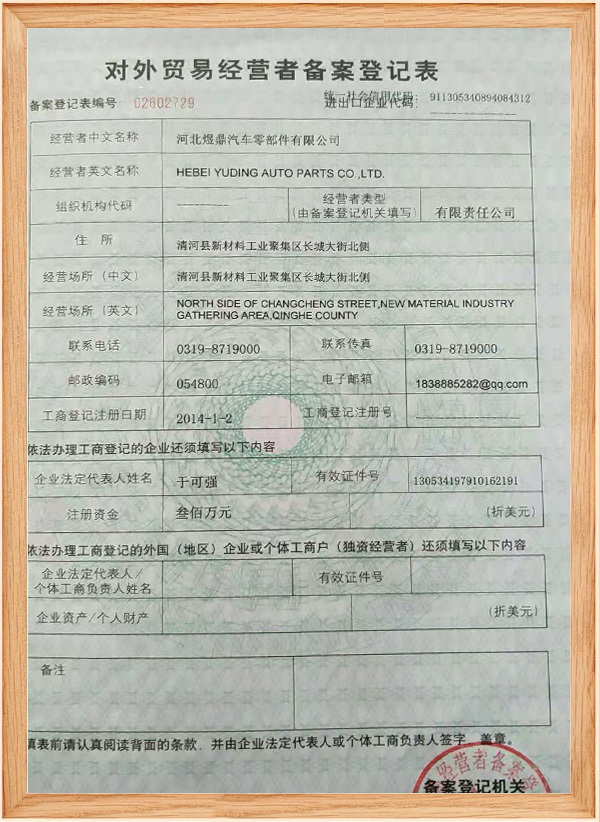 对外贸易经营者备案登记表
备案登记表编号 02602729
统一社会信用代码:
进出口企业代码: 911305340894084312
经营者中文名称 河北煜鼎汽车零部件有限公司
经营者英文名称 HEBEI YUDING AUTO PARTS CO.,LTD.
组织机构代码 ---------- 经营者类型
(由备案登记机关填写) 有限责任公司
住 所 清河县新材料工业聚集区长城大街北侧
经营场所（中文） 清河县新材料工业聚集区长城大街北侧
经营场所（英文） NORTH SIDE OF CHANGCHENG STREET,NEW MATERIAL INDUSTRY
GATHERING AREA,QINGHE COUNTY
联系电话 0319-8719000 联系传真 0319-8719000
邮政编码 054800 电子邮箱 1838885282@qq.com
工商登记注册日期 2014-1-2 工商登记注册号 ----------
依法办理工商登记的企业还须填写以下内容
企业法定代表人姓名 于可强 有效证件号 130534197910162191
注册资金 叁佰万元 (折美元)
依法办理工商登记的外国（地区）企业或个体工商户（独资经营者）还须填写以下内容
企业法定代表人/
个体工商负责人姓名 有效证件号
企业资产/个人财产 (折美元)
备注
填表前请认真阅读背面的条款，并由企业法定代表人或个体工商负责人签字、盖章。
经营者备案登
备案登记机关